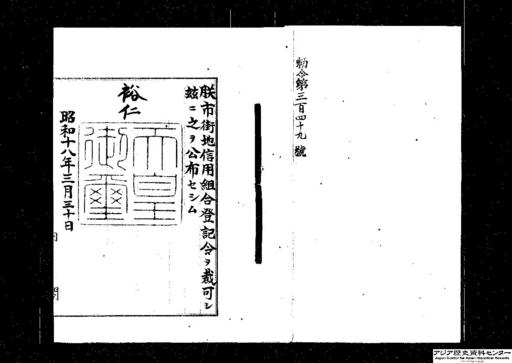 勅令第三百四十九號
朕市街地信用組合登記令ヲ裁可シ
玆ニ之ヲ公布セシム
裕仁
天皇
御璽
昭和十八年三月三十日
内閣
アジア歴史資料センター
Japan Center for Asian Historical Records